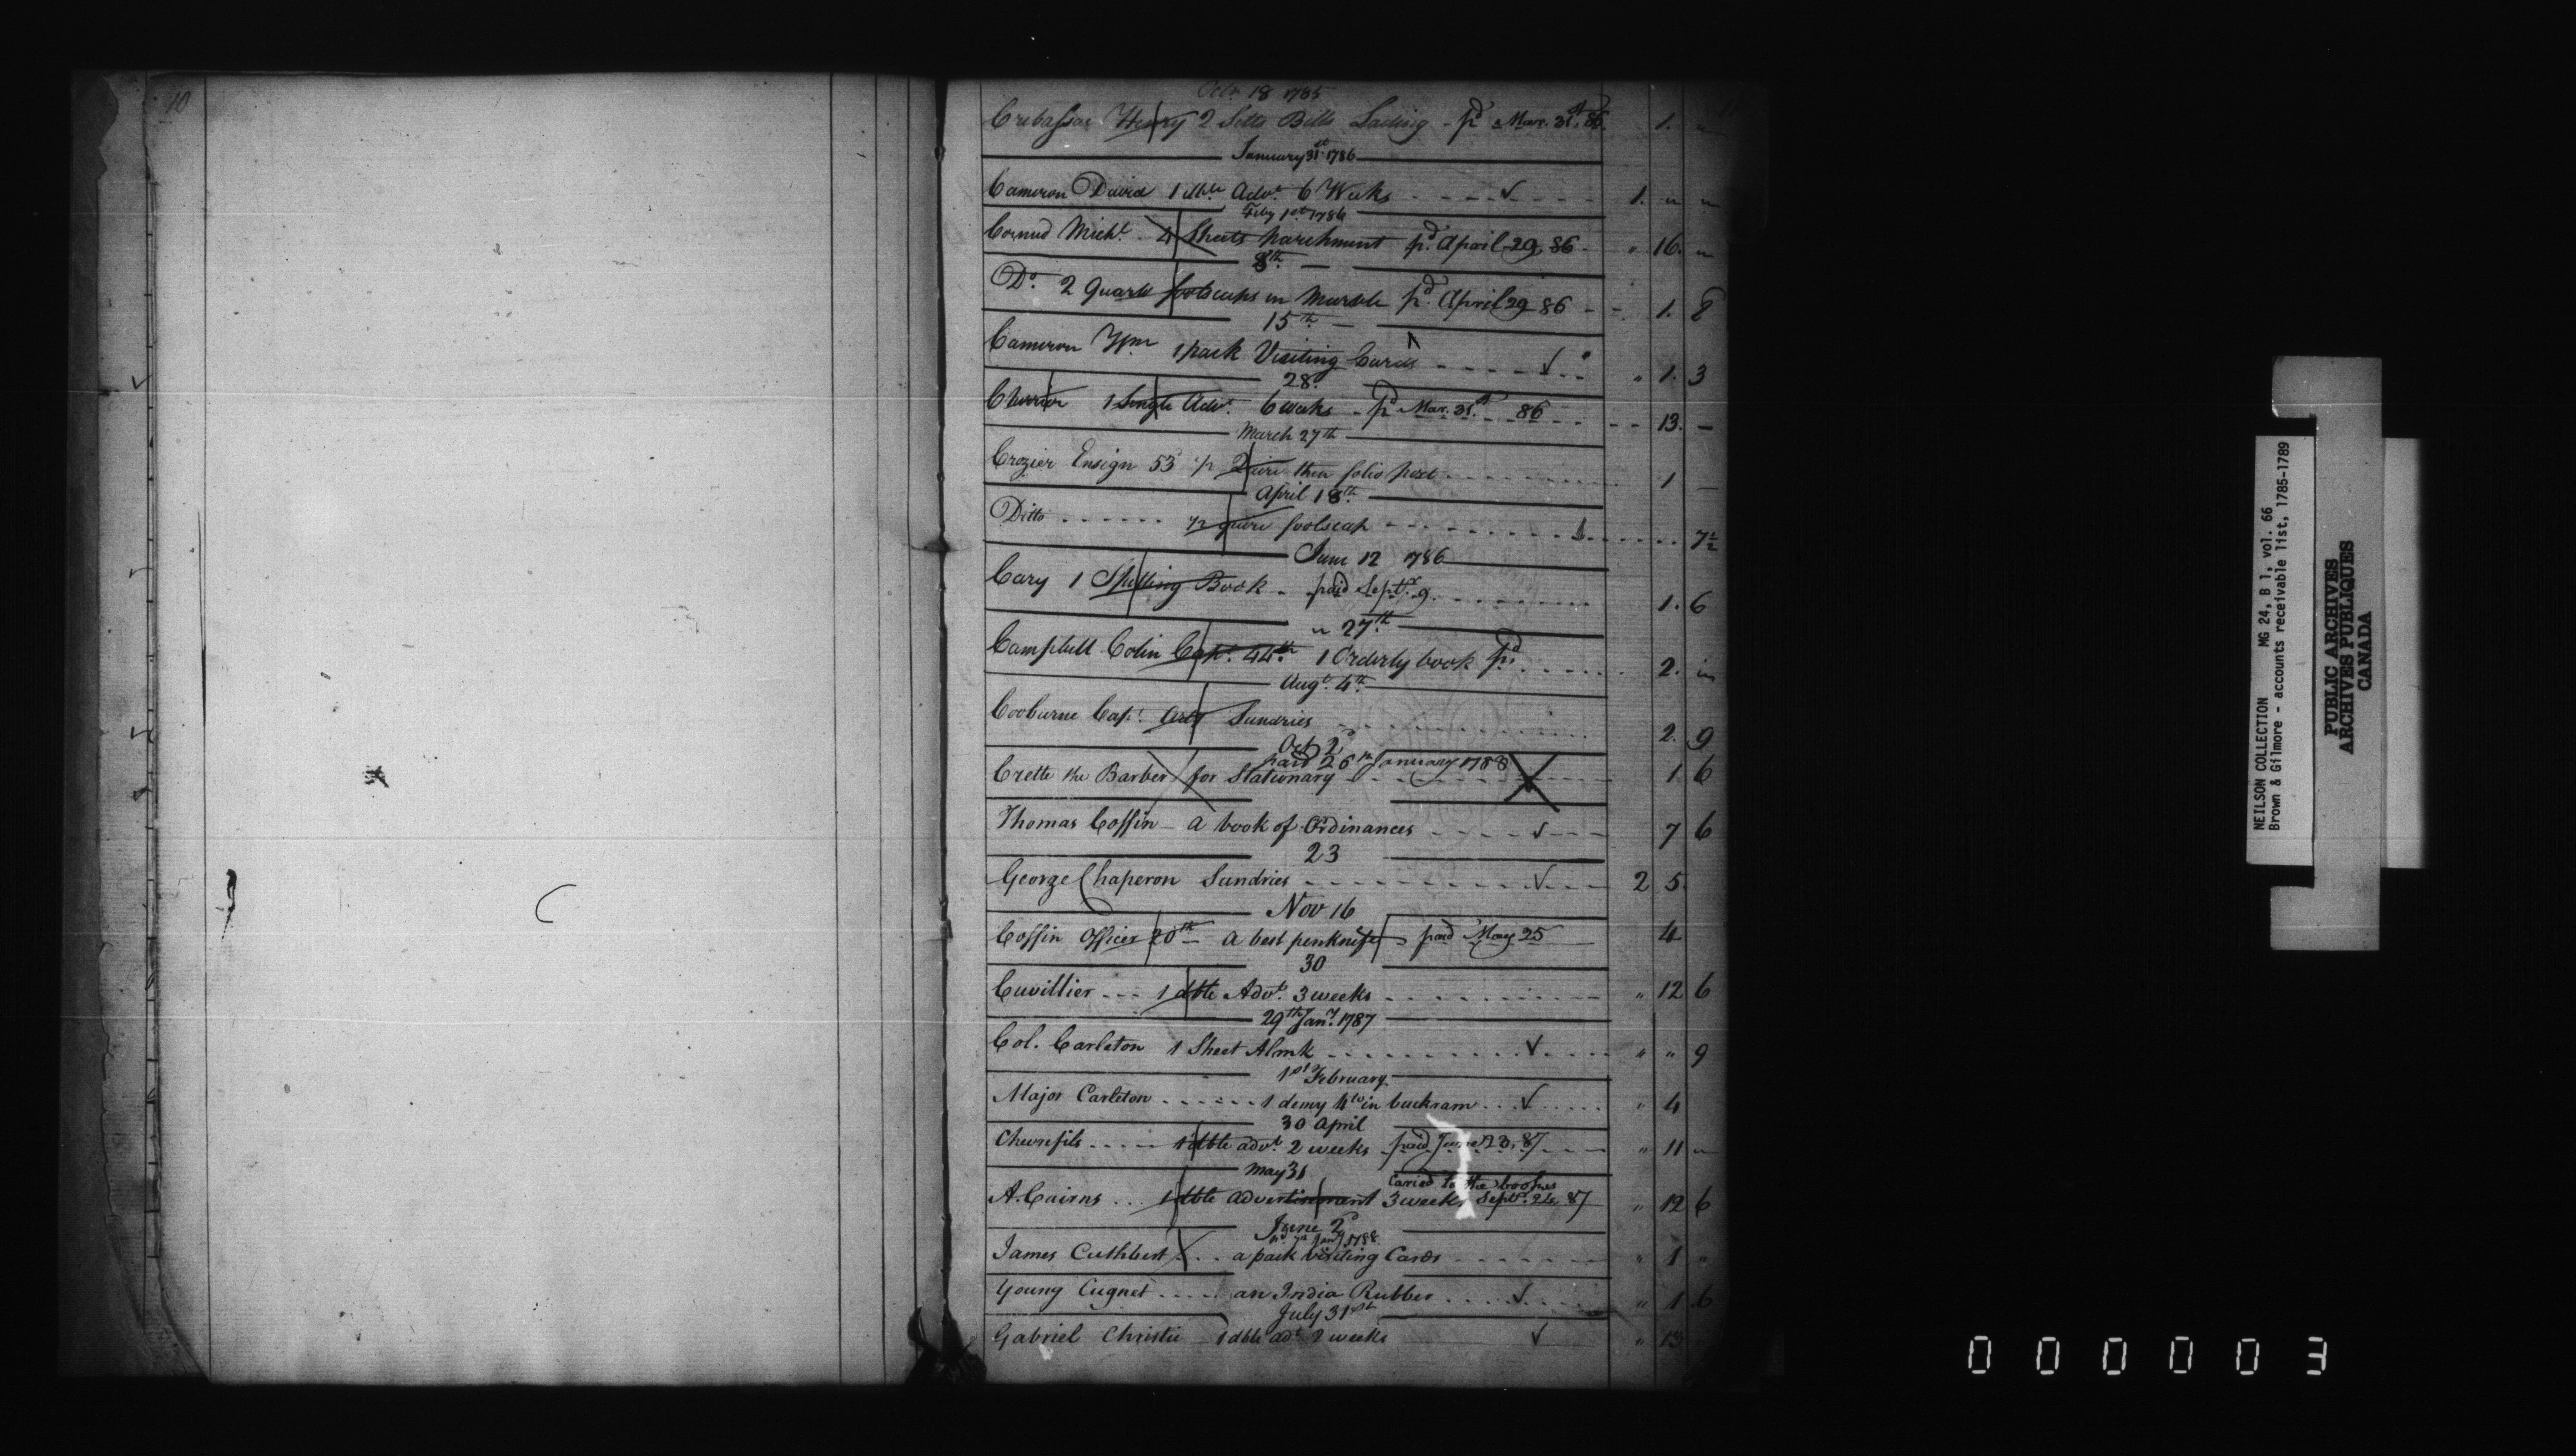 10
Octr. 18 1785
Crebassa Henry 2 Setts Bills Lading - pd. Mar. 31st. 86. 1. "
January 31st. 1786
Cameron David 1 dble Advt. 6 Weeks - - - - 1. " "
Feby 1st. 1786
Cornud Michl. 4 Sheets parchment pd. April 29, 86 - " 16. "
8th. —
Do. 2 Quarto foolscaps in Marble pd. April 29 86 - - 1. 8
15th —
Cameron Wm 1 pack Visiting Cards - - - - " 1. 3
28.
Cherrier 1 Single Advt. 6 weeks - pd. Mar. 31st. 86 - - 13. —
March 27th
Crozier Ensign 53d ½ Quire thin folio post - - - - 1 —
April 18th.
Ditto - - - - - - ½ quire foolscap - - - - 7½
June 12 1786
Cary 1 Spelling Book - paid Septr. 9 - - - - 1. 6
" 27th.
Campbell Colin Capt. 44th. 1 Orderly book pd. - - - - 2. "
Augt. 4th.
Cocburne Capt. Arty Sundries - - - - 2. 9
Oct 2d
paid 26th January 1788
Crette the Barber for Stationary - - - - 1. 6
Thomas Coffin - a book of Ordinances - - - - 7 6
23
George Chaperon Sundries - - - - 2 5.
Nov 16
Coffin Officer 20th - a best penknife - paid May 25 4
30
Cuvillier - - - 1 dble Advt. 3 weeks - - - - " 12 6
29th Jany. 1787
Col. Carleton 1 Sheet Almk - - - - " " 9
1st February
Major Carleton - - - - - - 1 demy 4to in buckram - - - - " 4
30 April
Chevrefils - - - - 1 dble advt. 2 weeks paid June 23, 87 - - - " 11 "
May 31
Caried to the books
A. Cairns - - - 1 dble advertisement 3 weeks Septr. 24 87 " 12 6
June 2d
pd. Jany 1788
James Cuthbert - - a pack visiting Cards - - - - " 1 "
Young Cugnet - - - - an India Rubber - - - - " 1 6
July 31st
Gabriel Christie 1 dble adt. 2 weeks " 13
NEILSON COLLECTION MG 24, B 1, vol. 66
Brown & Gilmore - accounts receivable list, 1785-1789
PUBLIC ARCHIVES
ARCHIVES PUBLIQUES
CANADA
000003